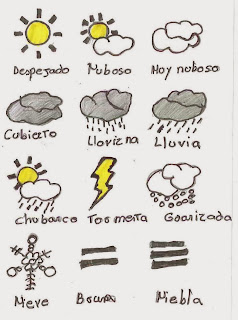 Despejado Nuboso Muy nuboso
Cubierto Llovizna Lluvia
Chubasco Tormenta Granizada
Nieve Bruma Niebla